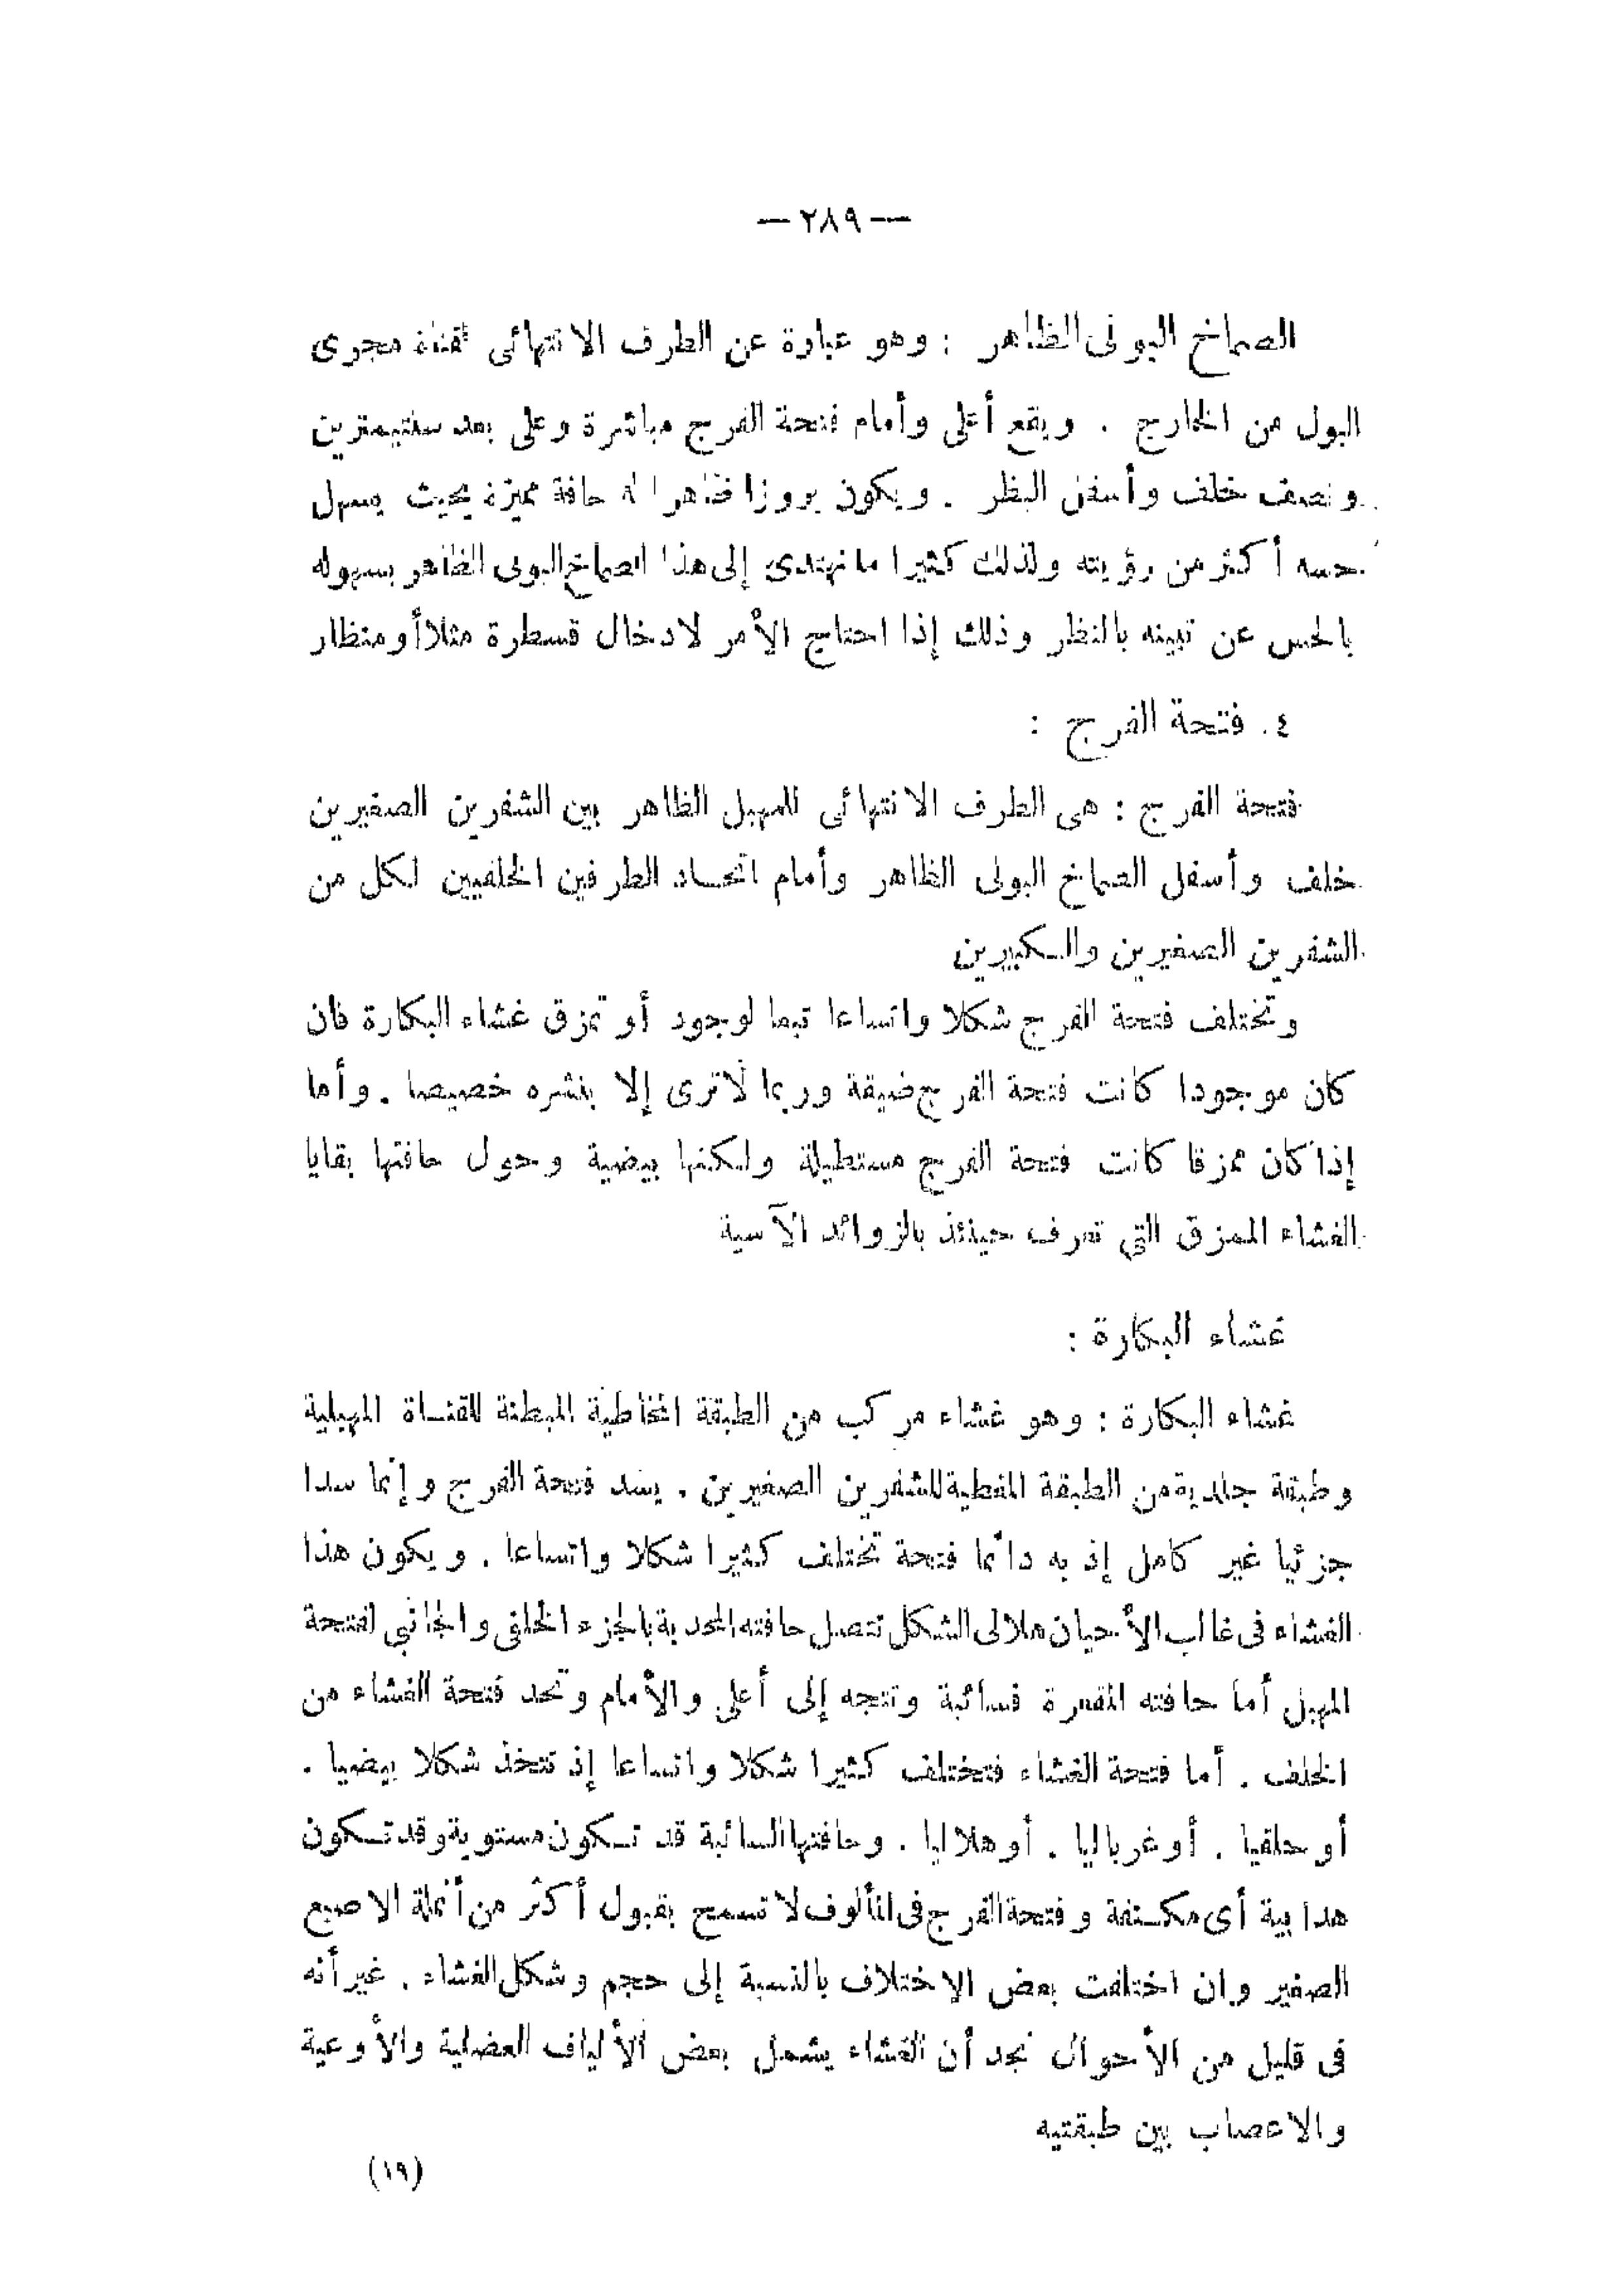 — ٢٨٩ —
الصماخ البولى الظاهر : وهو عبارة عن الطرف الانتهائى لقناة مجرى
البول من الخارج . ويقع أعلى وأمام فتحة الفرج مباشرة وعلى بعد سنتيمترين
ونصف خلف وأسفل البظر . ويكون بروزا ظاهرا له حافة مميزة بحيث يسهل
حسه أكثر من رؤيته ولذلك كثيرا ما نهتدى إلى هذا الصماخ البولى الظاهر بسهوله
بالحس عن تبينه بالنظر وذلك إذا احتاج الأمر لادخال قسطرة مثلا أو منظار
٤. فتحة الفرج :
فتحة الفرج : هى الطرف الانتهائى للمهبل الظاهر بين الشفرين الصغيرين
خلف وأسفل الصماخ البولى الظاهر وأمام اتحاد الطرفين الخلفيين لكل من
الشفرين الصغيرين والكبيرين
وتختلف فتحة الفرج شكلا واتساعا تبعا لوجود أو تمزق غشاء البكارة فان
كان موجودا كانت فتحة الفرج ضيقة وربما لا ترى إلا بنشره خصيصا . وأما
إذا كان ممزقا كانت فتحة الفرج مستطيلة ولكنها بيضية وحول حافتها بقايا
الغشاء الممزق التي تعرف حينئذ بالزوائد الآسية
غشاء البكارة :
غشاء البكارة : وهو غشاء مركب من الطبقة المخاطية المبطنة للقناة المهبلية
وطبقة جلدية من الطبقة المغطية للشفرين الصغيرين . يسد فتحة الفرج وإنما سدا
جزئيا غير كامل إذ به دائما فتحة تختلف كثيرا شكلا واتساعا . ويكون هذا
الغشاء فى غالب الأحيان هلالى الشكل تتصل حافته المحدبة بالجزء الخلفى والجانبي لفتحة
المهبل أما حافته المقعرة فسائبة وتتجه إلى أعلى والأمام وتحد فتحة الغشاء من
الخلف . أما فتحة الغشاء فتختلف كثيرا شكلا واتساعا إذ تتخذ شكلا بيضيا .
أو حلقيا . أو غرباليا . أو هلاليا . وحافتها السائبة قد تكون مستوية وقد تكون
هدابية أى مكشفة وفتحة الفرج فى المألوف لا تسمح بقبول أكثر من أنملة الاصبع
الصغير وان اختلفت بعض الاختلاف بالنسبة إلى حجم وشكل الغشاء . غير أنه
فى قليل من الأحوال نجد أن الغشاء يشمل بعض الألياف العضلية والأوعية
والاعصاب بين طبقتيه
(١٩)